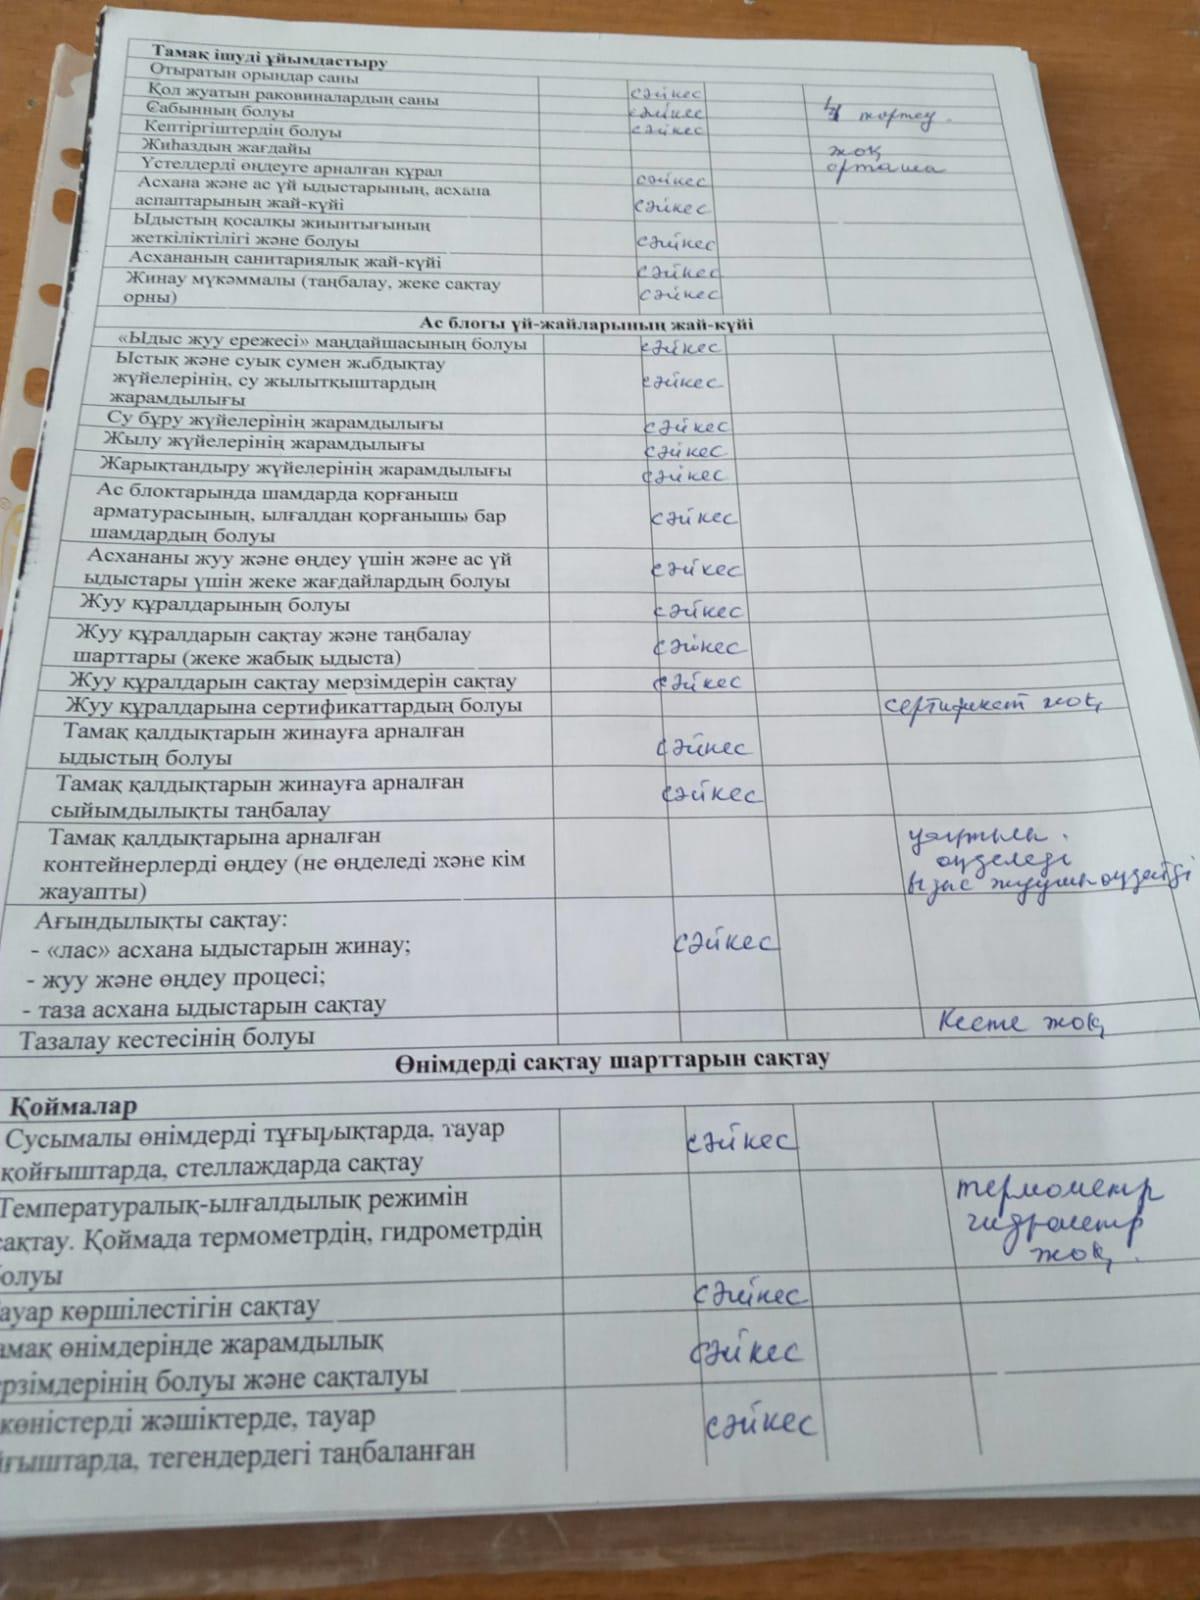 Тамақ ішуді ұйымдастыру
Отыратын орындар саны сәйкес
Қол жуатын раковиналардың саны сәйкес 4 төртеу.
Сабынның болуы сәйкес
Кептіргіштердің болуы жоқ
Жиһаздың жағдайы орташа
Үстелдерді өңдеуге арналған құрал сәйкес
Асхана және ас үй ыдыстарының, асхана
аспаптарының жай-күйі сәйкес
Ыдыстың қосалқы жиынтығының
жеткіліктілігі және болуы сәйкес
Асхананың санитариялық жай-күйі сәйкес
Жинау мүкәммалы (таңбалау, жеке сақтау
орны) сәйкес
Ас блогы үй-жайларының жай-күйі
«Ыдыс жуу ережесі» маңдайшасының болуы сәйкес
Ыстық және суық сумен жабдықтау
жүйелерінің, су жылытқыштардың сәйкес
жарамдылығы
Су бұру жүйелерінің жарамдылығы сәйкес
Жылу жүйелерінің жарамдылығы сәйкес
Жарықтандыру жүйелерінің жарамдылығы сәйкес
Ас блоктарында шамдарда қорғаныш
арматурасының, ылғалдан қорғанышы бар сәйкес
шамдардың болуы
Асхананы жуу және өңдеу үшін және ас үй
ыдыстары үшін жеке жағдайлардың болуы сәйкес
Жуу құралдарының болуы сәйкес
Жуу құралдарын сақтау және таңбалау
шарттары (жеке жабық ыдыста) сәйкес
Жуу құралдарын сақтау мерзімдерін сақтау сәйкес
Жуу құралдарына сертификаттардың болуы сертификат жоқ
Тамақ қалдықтарын жинауға арналған
ыдыстың болуы сәйкес
Тамақ қалдықтарын жинауға арналған
сыйымдылықты таңбалау сәйкес
Тамақ қалдықтарына арналған
контейнерлерді өңдеу (не өңделеді және кім өңделеді
жауапты) ыдыс жуушы өңдейді
Ағындылықты сақтау:
- «лас» асхана ыдыстарын жинау; сәйкес
- жуу және өңдеу процесі;
- таза асхана ыдыстарын сақтау
Тазалау кестесінің болуы Кесте жоқ
Өнімдерді сақтау шарттарын сақтау
Қоймалар
Сусымалы өнімдерді тұғырықтарда, тауар сәйкес
қойғыштарда, стеллаждарда сақтау
Температуралық-ылғалдылық режимін термометр
сақтау. Қоймада термометрдің, гидрометрдің гидрометр
болуы жоқ.
ауар көршілестігін сақтау сәйкес
амақ өнімдерінде жарамдылық сәйкес
ерзімдерінің болуы және сақталуы
көністерді жәшіктерде, тауар сәйкес
йғыштарда, тегендердегі таңбаланған